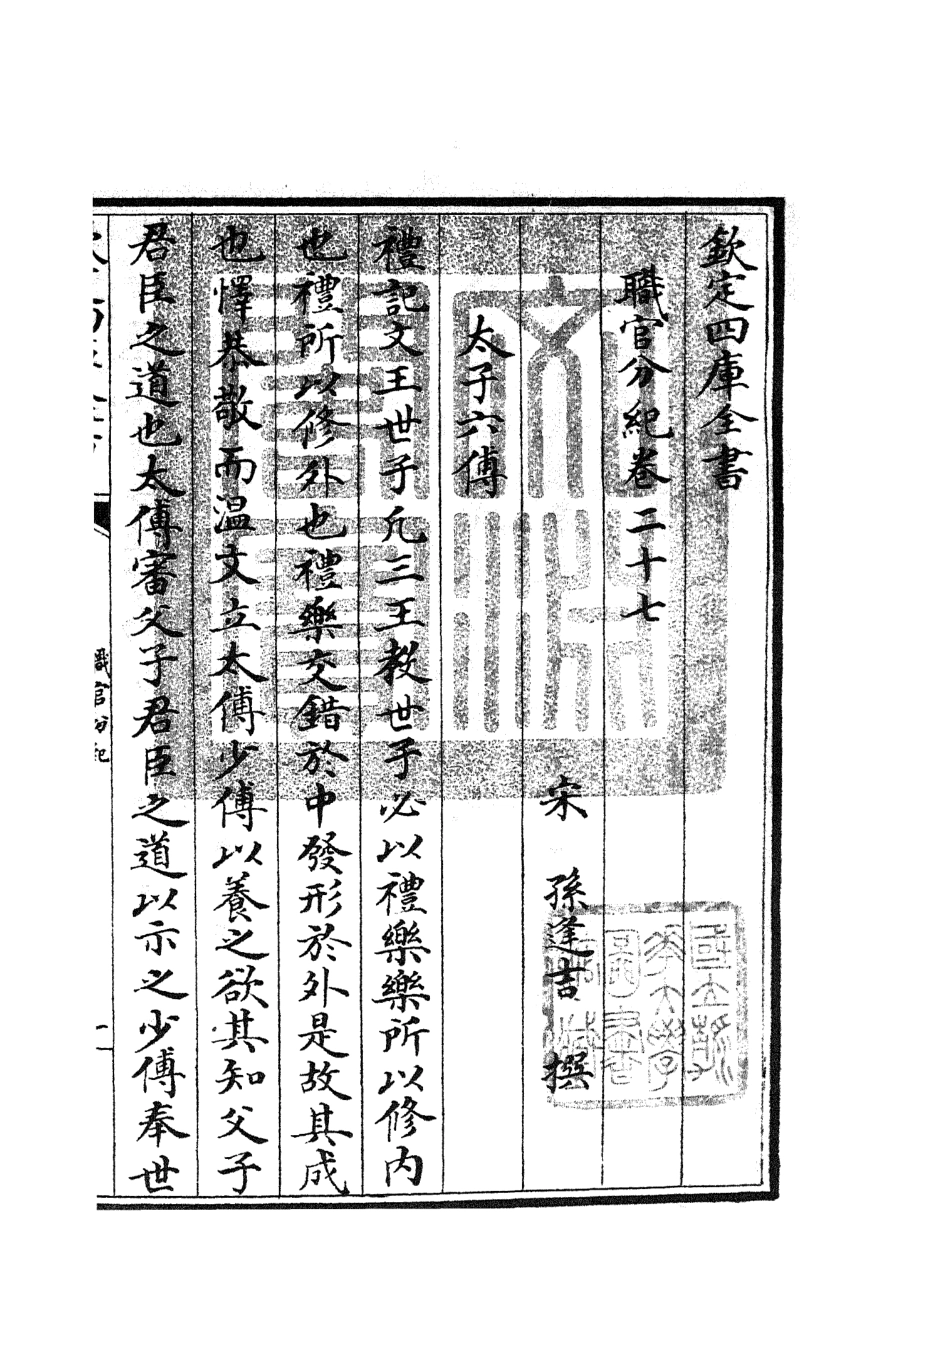 欽定四庫全書
職官分紀卷二十七
宋 孫逢吉 撰
太子六傅
禮記文王世子凡三王教世子必以禮樂樂所以修内
也禮所以修外也禮樂交錯於中發形於外是故其成
也懌恭敬而温文立太傅少傅以養之欲其知父子
君臣之道也太傅審父子君臣之道以示之少傅奉世
職官分紀
一